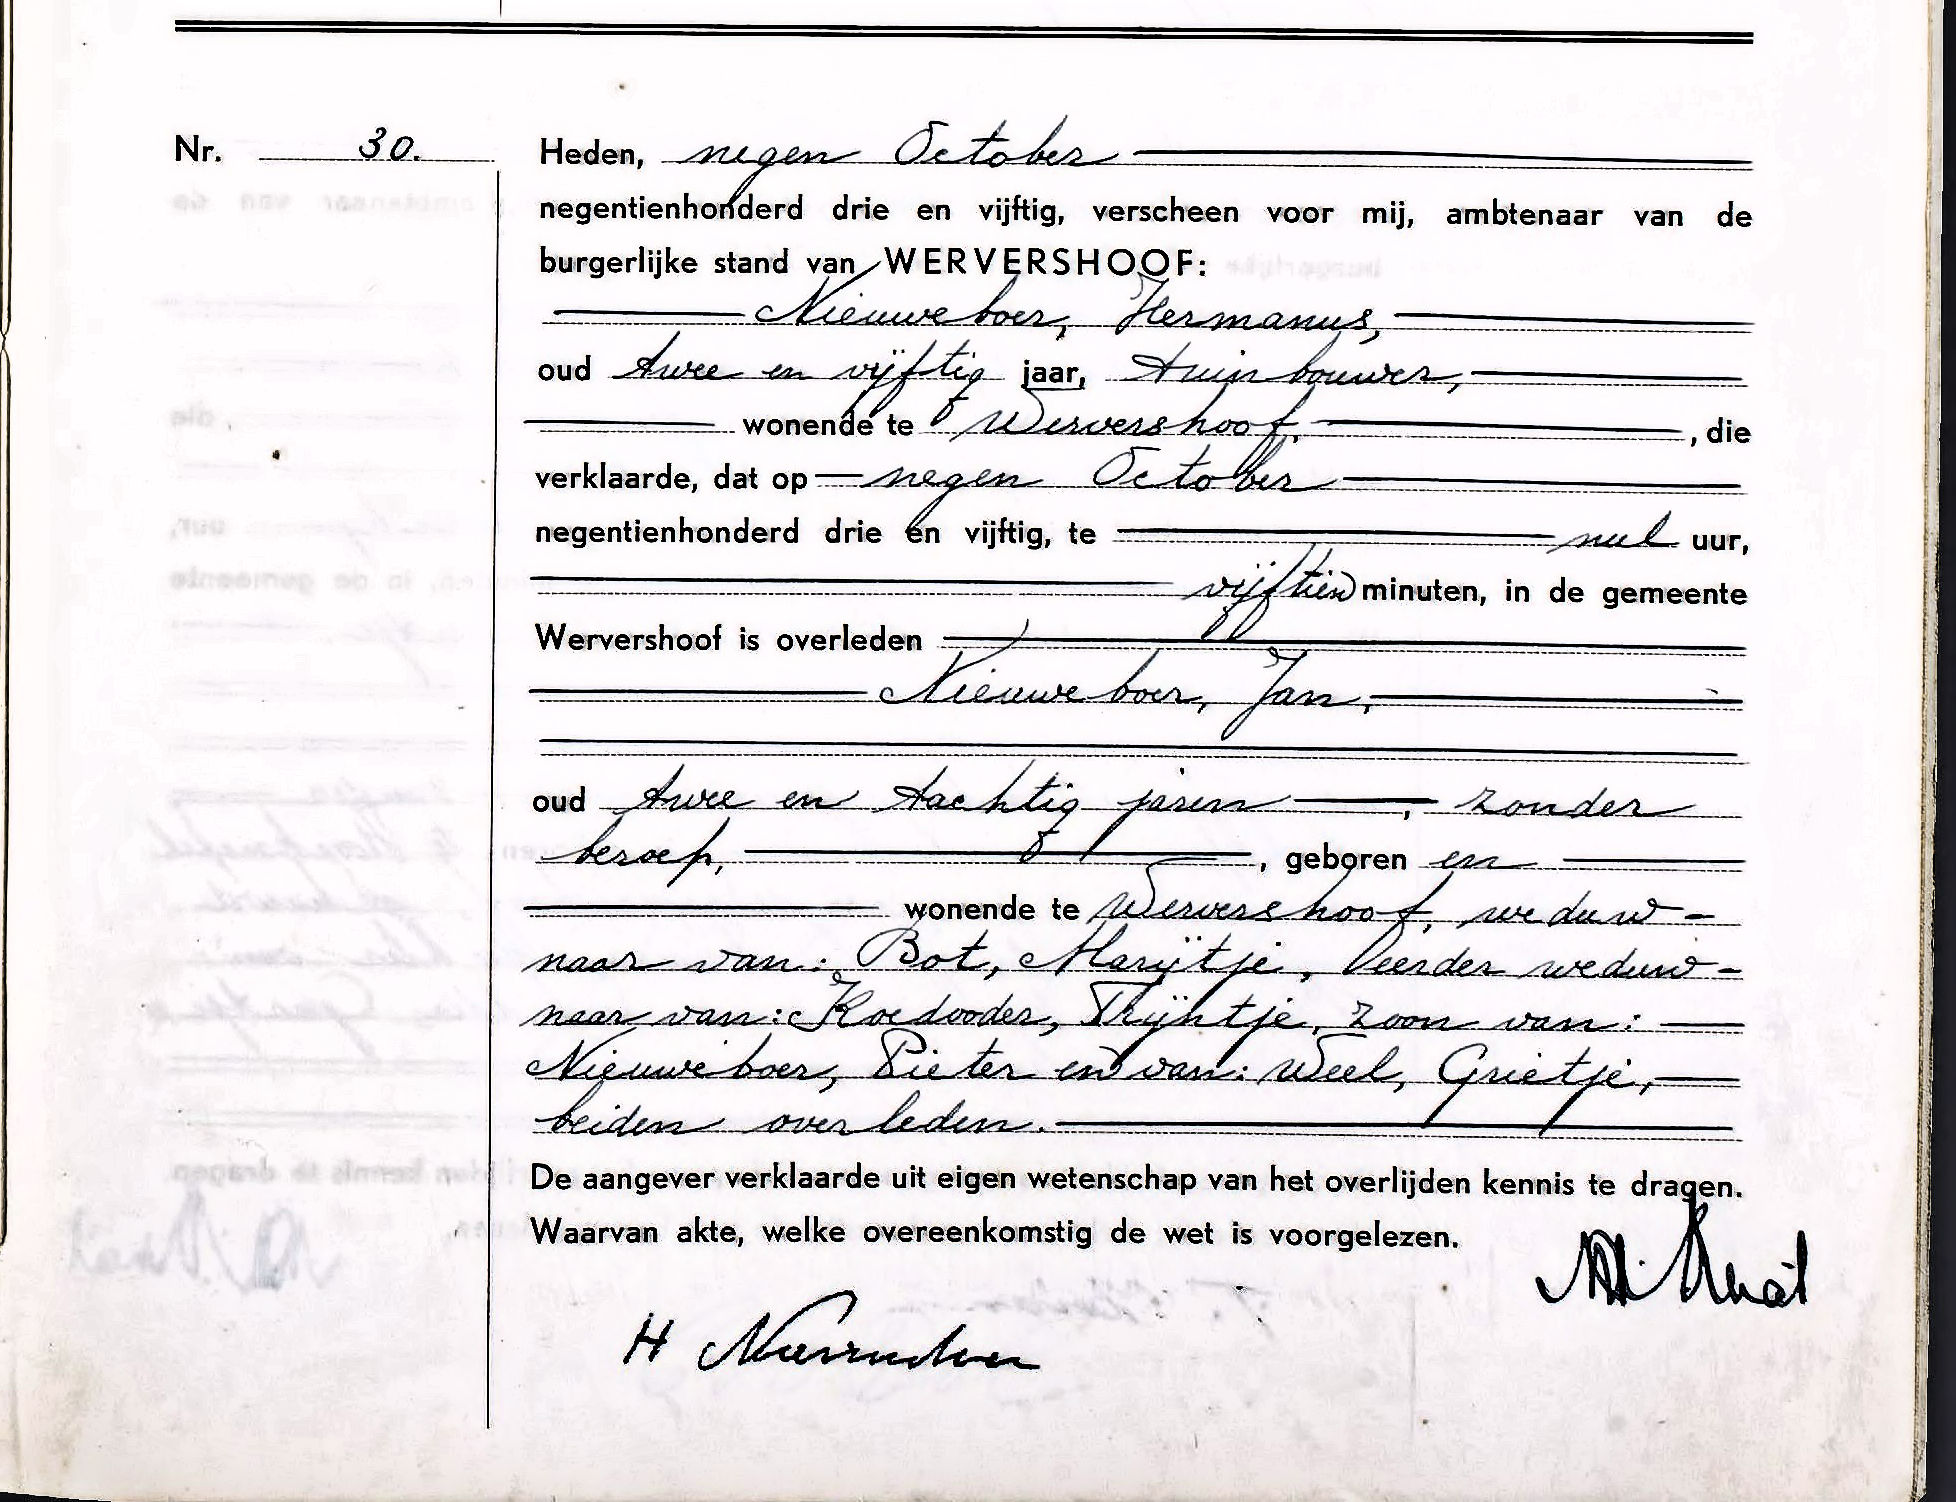 Nr. 30.
Heden, negen October
negentienhonderd drie en vijftig, verscheen voor mij, ambtenaar van de
burgerlijke stand van WERVERSHOOF:
Nieuweboer, Hermanus,
oud twee en vijftig jaar, tuinbouwer,
wonende te Wervershoof, , die
verklaarde, dat op negen October
negentienhonderd drie en vijftig, te nul uur,
vijftien minuten, in de gemeente
Wervershoof is overleden
Nieuweboer, Jan,
oud twee en tachtig jaren , zonder
beroep, , geboren en
wonende te Wervershoof, weduw-
naar van: Bot, Marijtje, eerder weduw-
naar van: Koedooder, Trijntje, zoon van:
Nieuweboer, Pieter en van: Weel, Grietje,
beiden overleden.
De aangever verklaarde uit eigen wetenschap van het overlijden kennis te dragen.
Waarvan akte, welke overeenkomstig de wet is voorgelezen.
H Nieuweboer